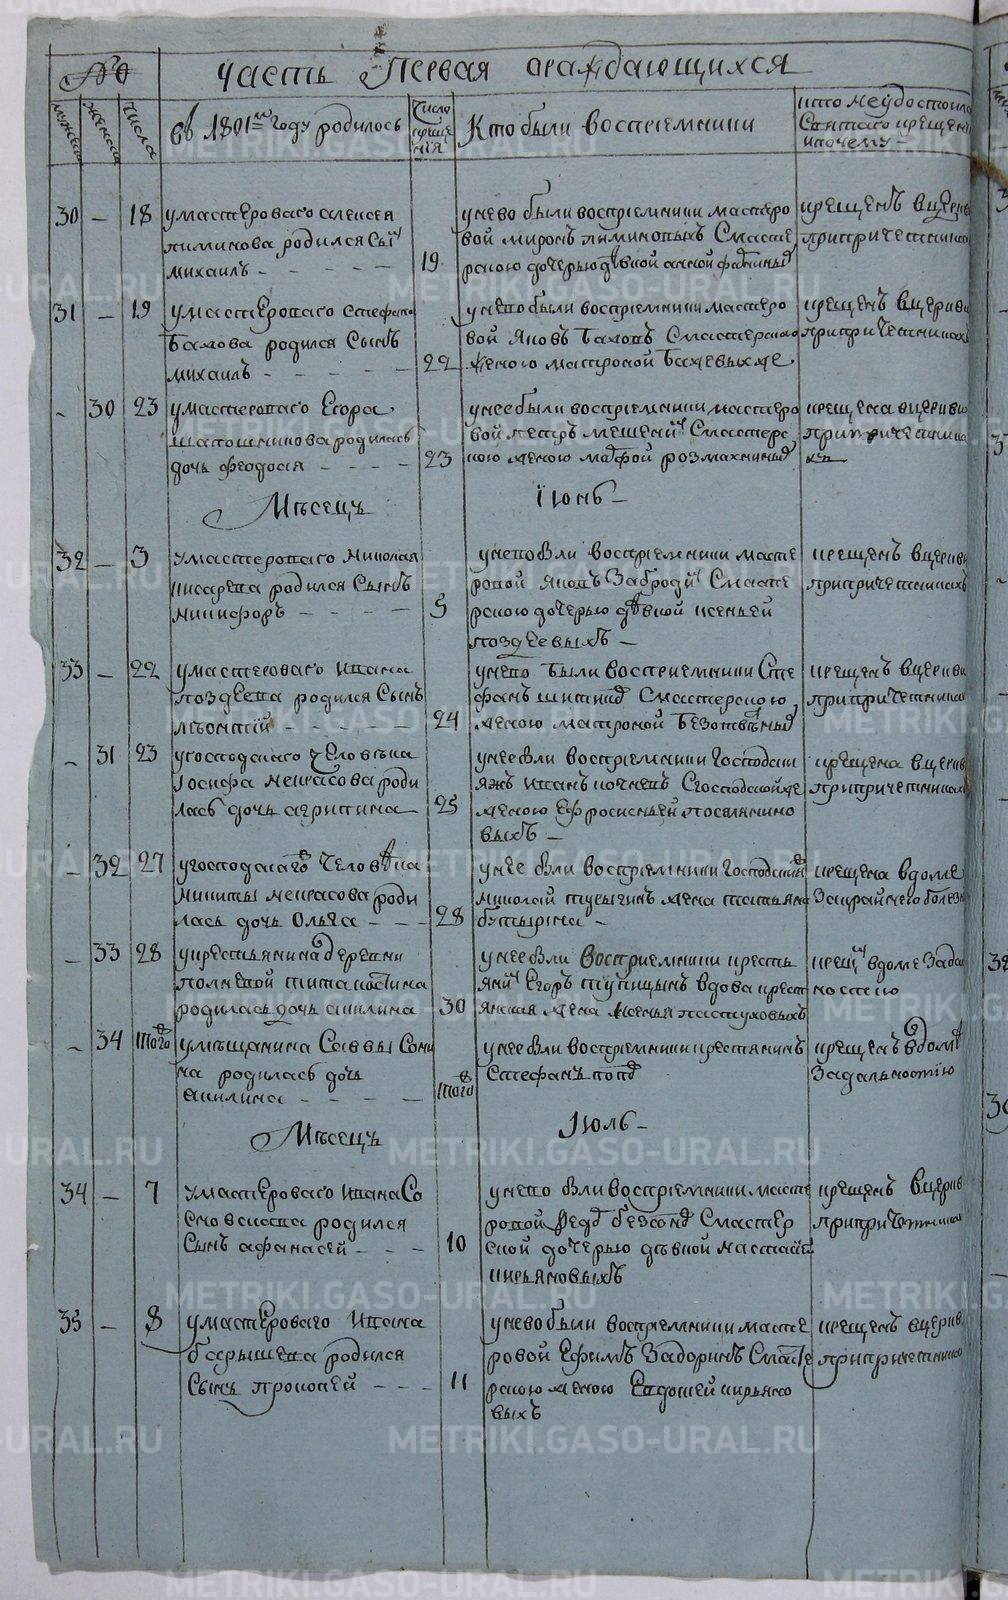 №
Часть Первая ораждающихся
мужеска
женска
числа
въ 1801мъ году родилось
Число
креще
нїя
Кто были восприемники
кто неудостоился
Святаго крещен
ипочему
30 — 18 умастероваго алексея
пиминова родился Сынъ
михаилъ 19
унево были восприемники мастеро
вой миронъ пиминовыхъ Смасте
рскою дочерью дѣвкой анной
крещенъ вцеркв
припричетника
31 — 19 умастероваго стефана
Бахова родился Сынъ
михаилъ 22
унево были восприемники мастеро
вой Яковъ Баховъ Смастерскою
женою матроной Бажевыхже
крещенъ вцеркви
припричетникахъ
- 30 23 умастероваго Егора
шапошникова родилась
дочь феодосья 23
унее были восприемники мастеро
вой петръ Смастерс
кою женою марфой
крещена вцеркви
припричетни
кахъ
Мѣсецъ Їюнь
32 — 3 умастероваго николая
писарева родился Сынъ
никифоръ 5
унево были восприемники масте
ровой Яковъ Смасте
рскою дочерью дѣвкой ксеньей
поздеевыхъ
крещенъ вцеркви
припричетникахъ
33 — 22 умастероваго Ивана
поздеева родился Сынъ
лѣонтїй 24
унево были восприемники Сте
фанъ Смастерскою
женою матроной
крещенъ вцеркви
припричетника
- 31 23 угосподскаго человѣка
Їосифа некрасова роди
лась дочь агрипина 25
унее были восприемники Господск
Иванъ Сгосподской же
женою Ефросиньей
выхъ
крещена вцеркв
припричетникахъ
- 32 27 угосподскаго человѣка
никиты некрасова роди
лась дочь Ольга 28
унее были восприемники Господский
николай жена татьяна
бутырина
крещена вдоме
Закрайнею болезн
- 33 28 укрестьянина деревни
полневой тита костина
родилась дочь акилина 30
унее были восприемники кресть
янинъ Егоръ тупицынъ вдова крест
янская жена Ксенья пастуховыхъ
крещ вдоме Зада
ностию
- 34 того умѣщанина Саввы Сони
на родилась дочь
акилина того
унее были восприемники крестянинъ
Стефанъ поповъ
крещенъ вдоме
Задальностїю
Мѣсецъ Їюль
34 — 7 умастероваго Ивана Со
сновскаго родился
Сынъ афанасей 10
унево были восприемники масте
ровой федоръ Смастер
ской дочерью дѣвкой настасїей
кирьяновыхъ
крещенъ вцеркв
припричетника
35 — 8 умастероваго Ивана
барышева родился
Сынъ прокопей 11
унево были восприемники масте
ровой Ефимъ Задоринъ Смасте
рскою женою Евдокией кирьяно
выхъ
крещенъ вцеркв
припричетника
METRIKI.GASO-URAL.RU